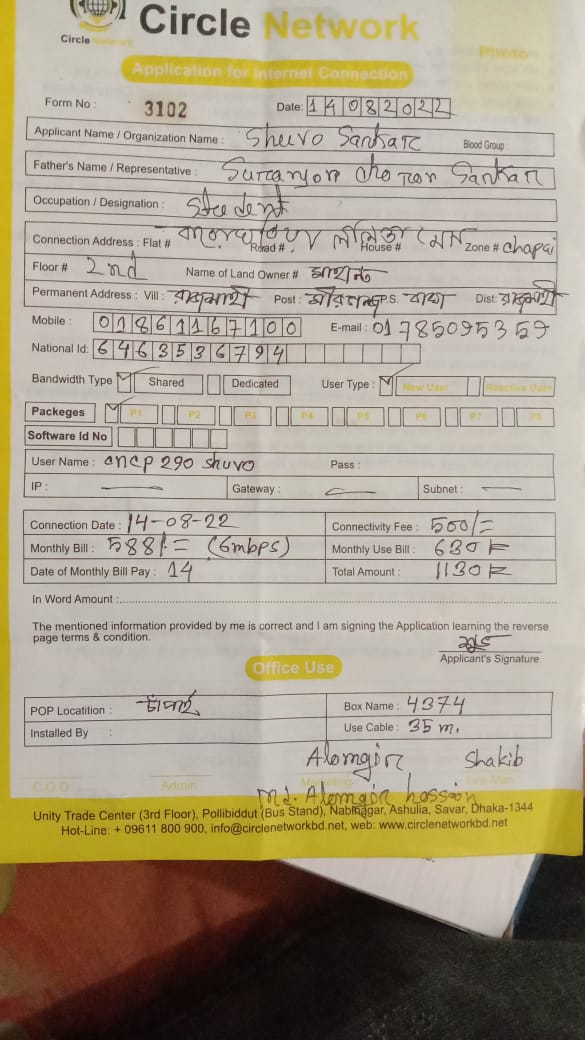 Circle Network
Circle Network
Photo
Application for Internet Connection
Form No : 3102 Date: 14082022
Applicant Name / Organization Name : Shuvo Sarkar Blood Group
Father's Name / Representative : Suranjon Sarkar
Occupation / Designation : Student
Connection Address : Flat # Road # House # Zone # chapai
Floor # 2nd Name of Land Owner #
Permanent Address : Vill : রাজশাহী Post : P.S. বাঘা Dist: রাজশাহী
Mobile : 01861167100 E-mail : 01785095359
National Id: 6463536794
Bandwidth Type Shared Dedicated User Type : New User Reactive User
Packeges P1 P2 P3 P4 P5 P6 P7 P8
Software Id No
User Name : cncp 290 shuvo Pass :
IP : Gateway : Subnet :
Connection Date : 14-08-22 Connectivity Fee : 500/=
Monthly Bill : 588/= (6mbps) Monthly Use Bill : 630
Date of Monthly Bill Pay : 14 Total Amount : 1130
In Word Amount :
The mentioned information provided by me is correct and I am signing the Application learning the reverse
page terms & condition.
Applicant's Signature
Office Use
POP Locatition : Box Name : 4374
Installed By : Use Cable : 35 m.
Alomgir Shakib
C.O.O Admin Marketing Line Man
Md. Alomgir hossain
Unity Trade Center (3rd Floor), Pollibiddut (Bus Stand), Nabinagar, Ashulia, Savar, Dhaka-1344
Hot-Line: + 09611 800 900, info@circlenetworkbd.net, web: www.circlenetworkbd.net